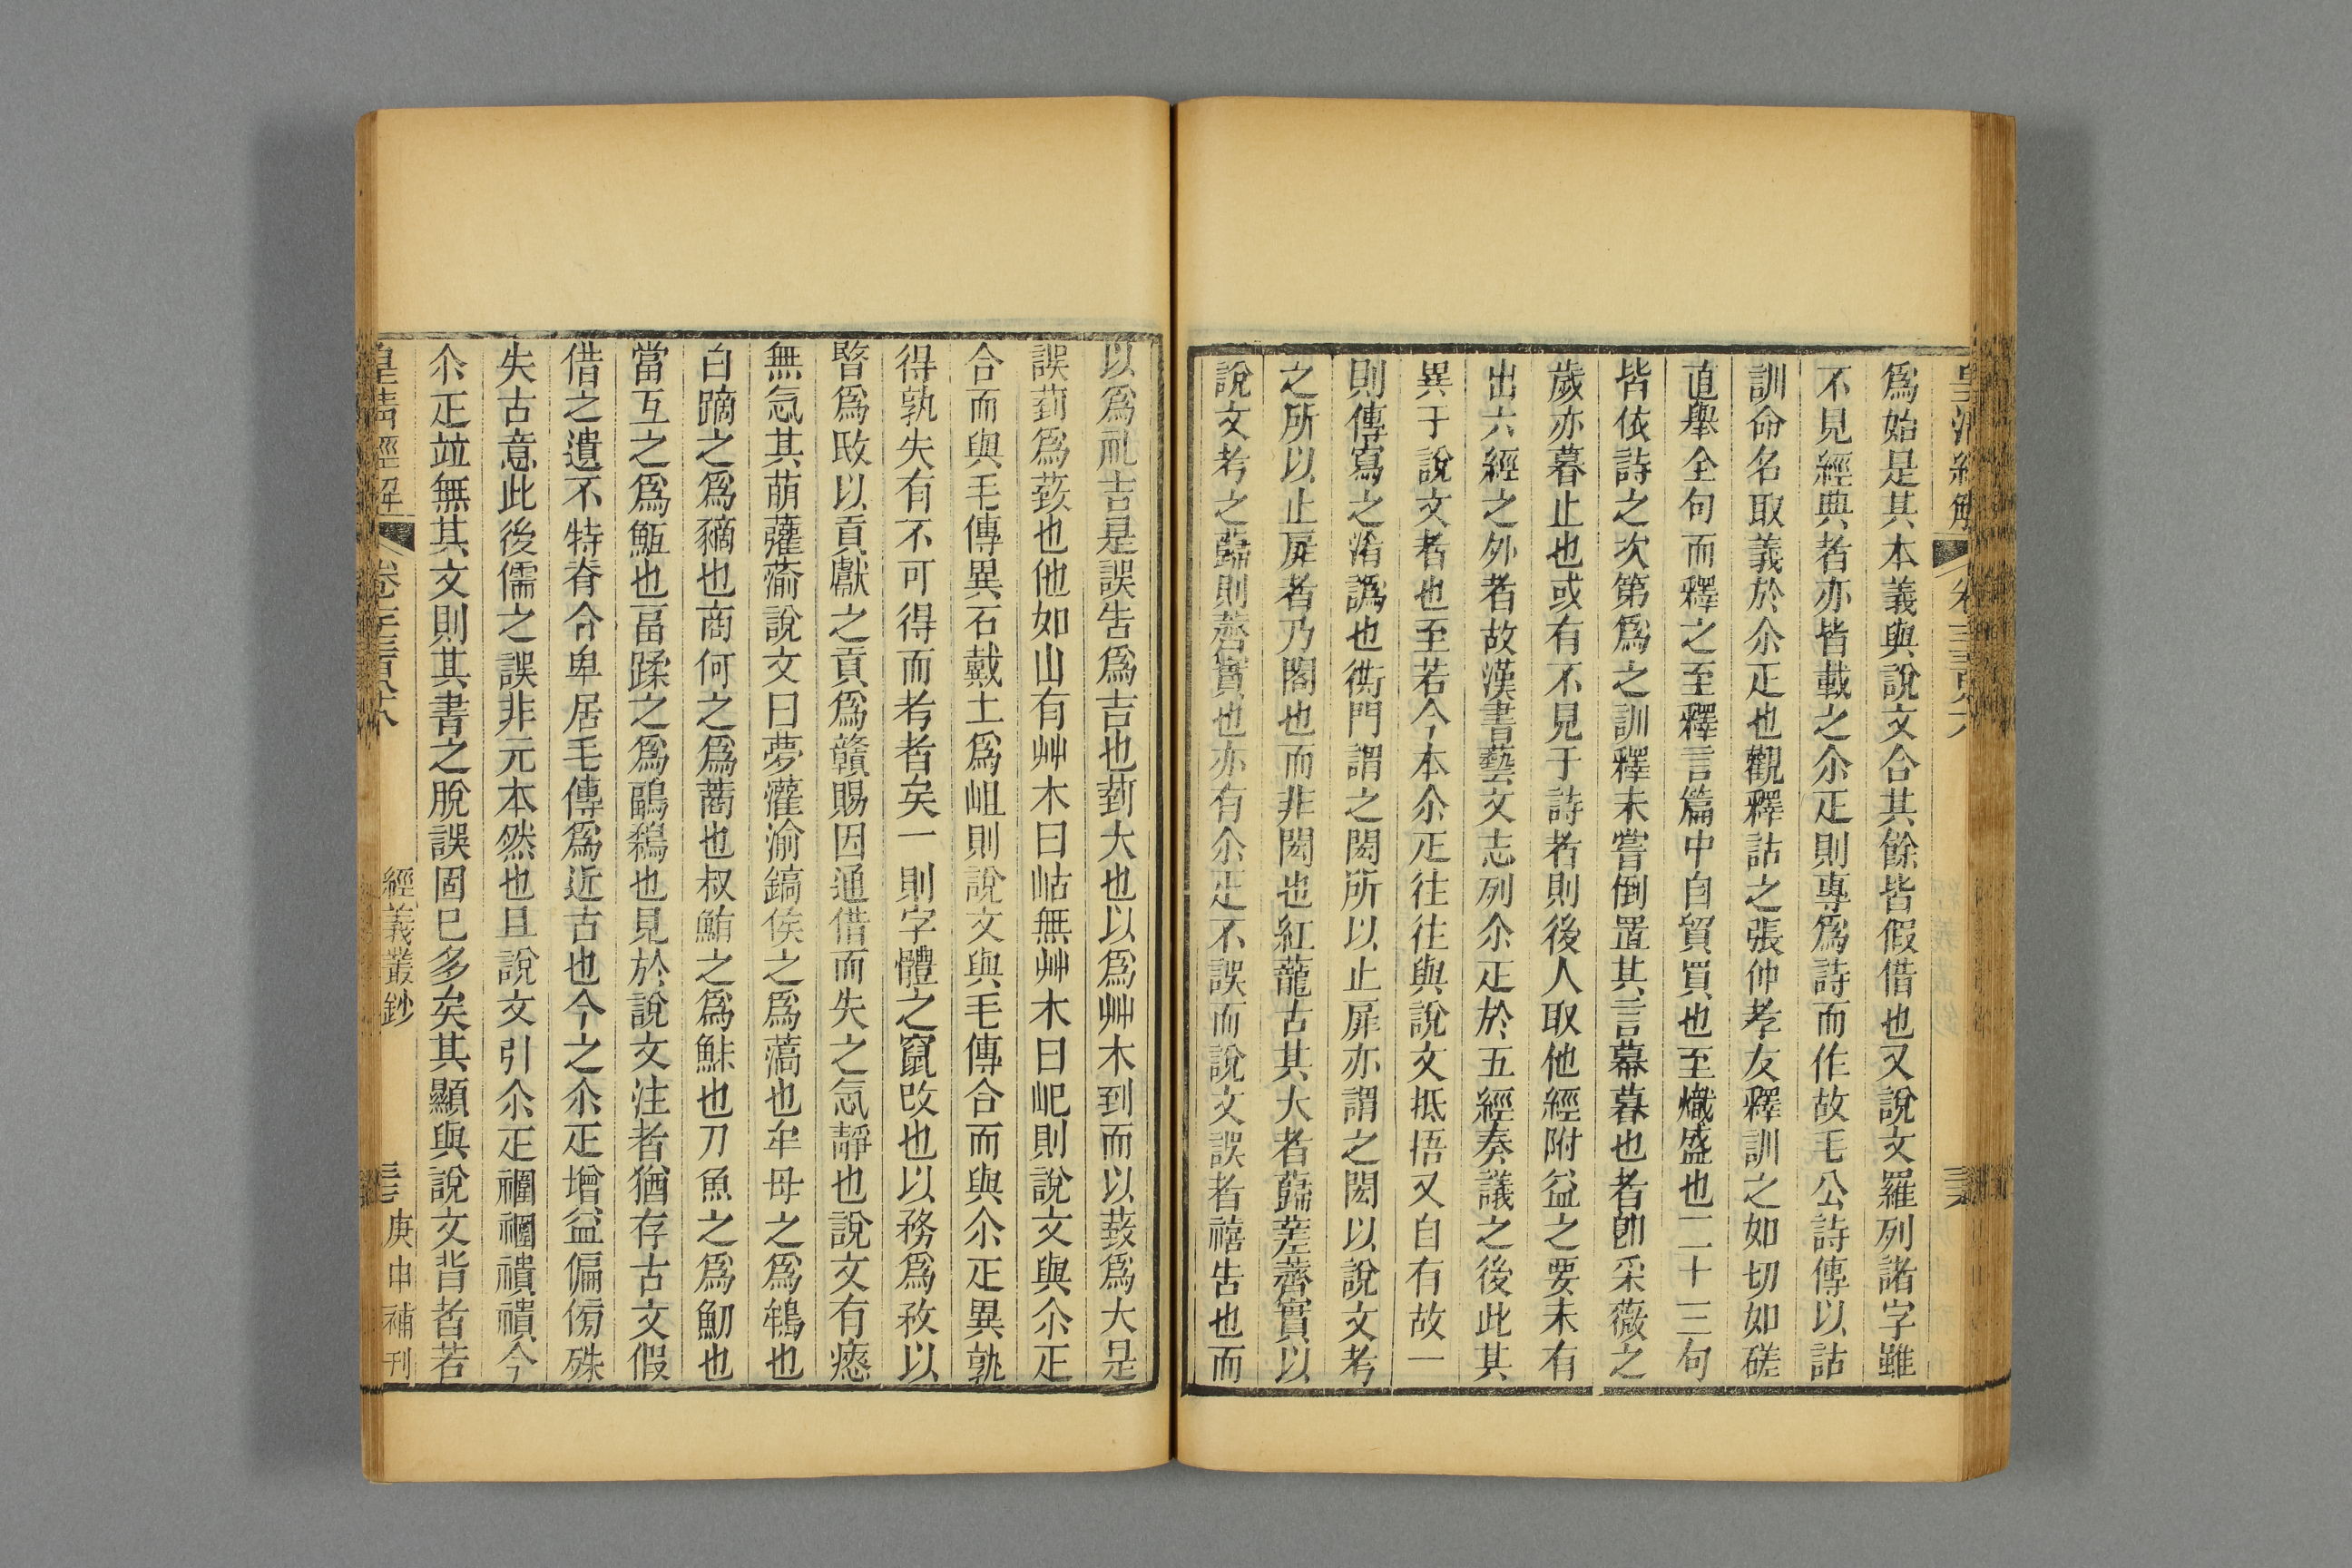 爲始是其本義與說文合其餘皆假借也又說文羅列諸字雖
不見經典者亦皆載之尒疋則專爲詩而作故毛公詩傳以詁
訓命名取義於尒疋也觀釋詁之張仲孝友釋訓之如切如磋
直舉全句而釋之至釋言篇中自貿買也至熾盛也二十三句
皆依詩之次第爲之訓釋未嘗倒置其言幕暮也者卽采薇之
歲亦暮止也或有不見于詩者則後人取他經附益之要未有
出六經之外者故漢書藝文志列尒疋於五經奏議之後此其
異于說文者也至若今本尒疋往往與說文抵捂又自有故一
則傳寫之淆譌也衖門謂之閎所以止扉亦謂之閎以說文考
之所以止扉者乃閣也而非閎也紅蘢古其大者蘬蒫薺實以
說文考之蘬則薺實也亦有尒疋不誤而說文誤者禧告也而
以爲礼吉是誤告爲吉也菿大也以爲艸木到而以菿爲大是
誤菿爲菿也他如山有艸木曰岵無艸木曰屺則說文與尒疋
合而與毛傳異石戴土爲岨則說文與毛傳合而與尒疋異孰
得孰失有不可得而考者矣一則字體之竄改也以務爲敄以
暋爲敃以貢獻之貢爲贛賜因通借而失之忥靜也說文有瘱
無忥其萌虇蕍說文曰夢灌渝鎬侯之爲薃也牟母之爲鴾也
白蹢之爲豴也商何之爲蔏也叔鮪之爲鮛也刀魚之爲魛也
當互之爲䱟也畐蹂之爲鶝鶔也見於說文注者猶存古文假
借之遺不特脊令卑居毛傳爲近古也今之尒疋增益偏傍殊
失古意此後儒之誤非元本然也且說文引尒疋襧襧襀襀今
尒疋竝無其文則其書之脫誤固已多矣其顯與說文背者若
皇淸經解
經義叢鈔
庚申補刊